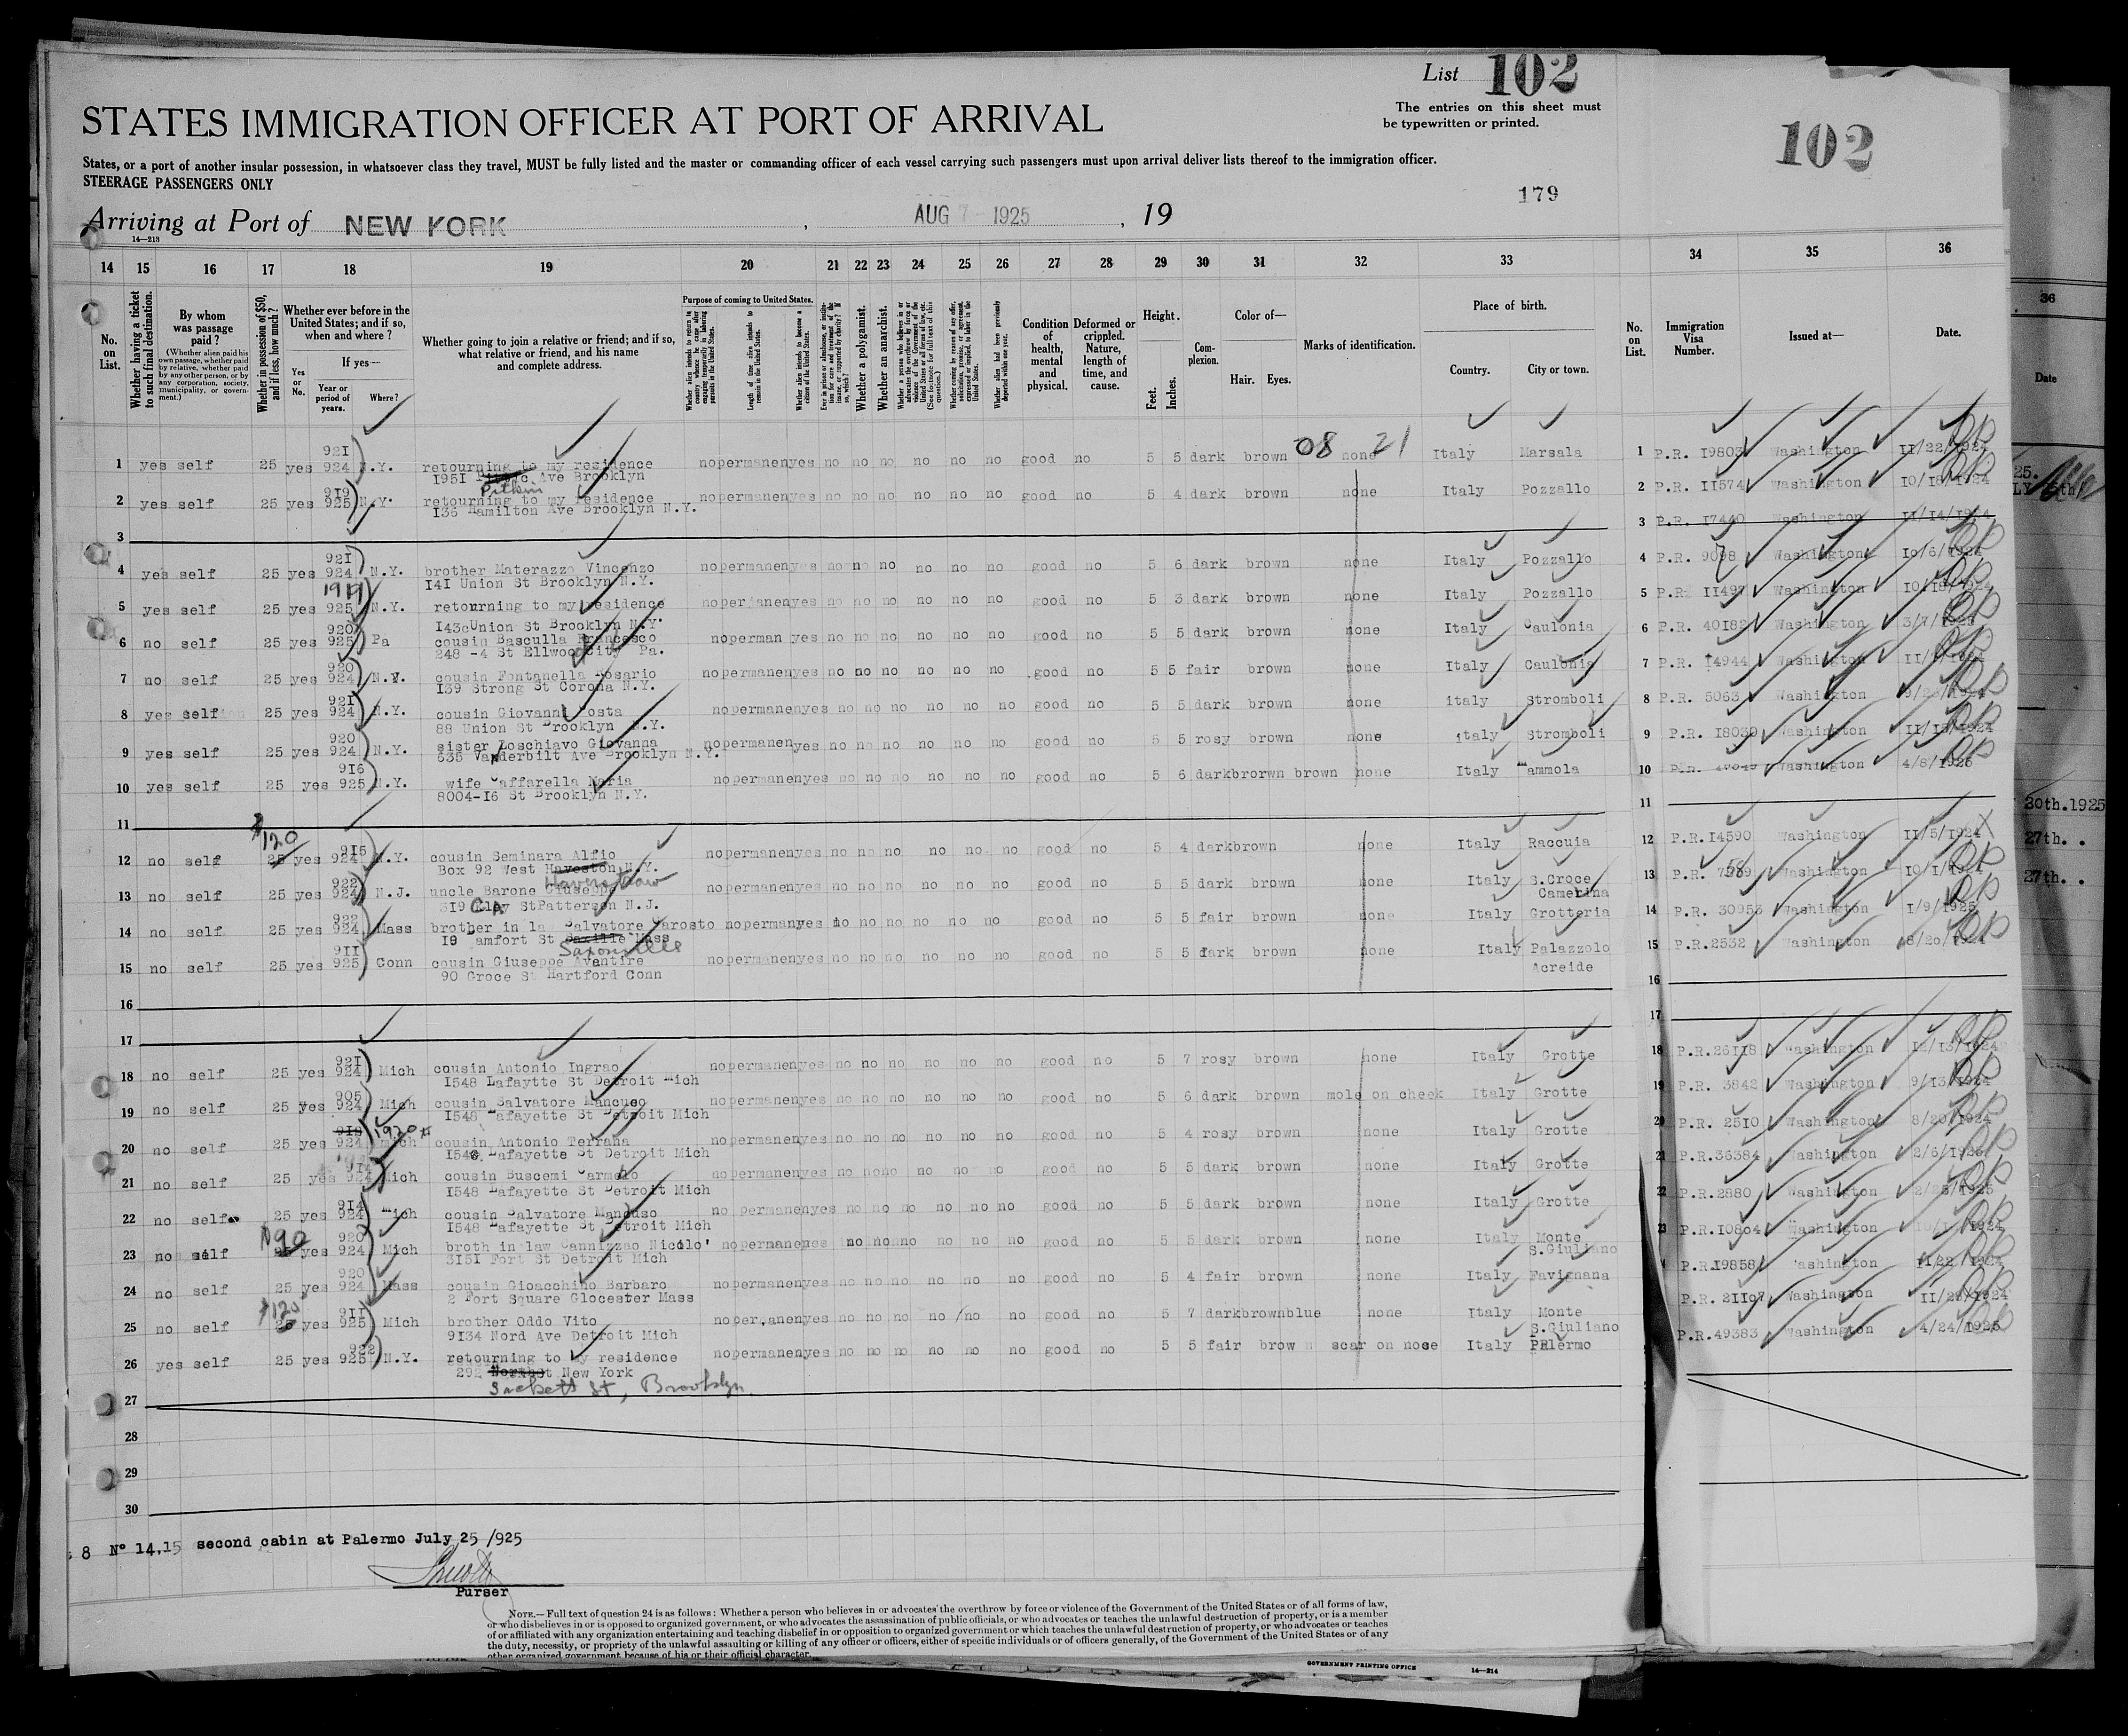 List 102
The entries on this sheet must
be typewritten or printed.
102
STATES IMMIGRATION OFFICER AT PORT OF ARRIVAL
States, or a port of another insular possession, in whatsoever class they travel, MUST be fully listed and the master or commanding officer of each vessel carrying such passengers must upon arrival deliver lists thereof to the immigration officer.
STEERAGE PASSENGERS ONLY
179
Arriving at Port of NEW YORK , AUG 7 1925 , 19
14—213
14 15 16 17 18 19 20 21 22 23 24 25 26 27 28 29 30 31 32 33 34 35 36
No. on List.
Whether having a ticket to such final destination.
By whom was passage paid?
(Whether alien paid his own passage, whether paid by relative, whether paid by any other person, or by any corporation, society, municipality, or government.)
Whether in possession of $50, and if less, how much?
Whether ever before in the United States; and if so, when and where?
Yes or No.
If yes—
Year or period of years.
Where?
Whether going to join a relative or friend; and if so, what relative or friend, and his name and complete address.
Purpose of coming to United States.
Length of time alien intends to remain in the United States.
Whether alien intends to become a citizen of the United States.
Whether a polygamist.
Whether an anarchist.
Condition of health, mental and physical.
Deformed or crippled. Nature, length of time, and cause.
Height.
Feet. Inches.
Complexion.
Color of—
Hair. Eyes.
Marks of identification.
Place of birth.
Country. City or town.
No. on List.
Immigration Visa Number.
Issued at—
Date.
36
Date
08 21
1 yes self 25 yes 921 924 N.Y. retourning to my residence no permanen yes no no no no no no good no 5 5 dark brown none Italy Marsala 1 P.R. 19803 Washington 11/22/1924
1951 Pitkin Ave Brooklyn
2 yes self 25 yes 919 925 N.Y. retourning to my residence no permanen yes no no no no no no good no 5 4 dark brown none Italy Pozzallo 2 P.R. 11574 Washington 10/18/1924
136 Hamilton Ave Brooklyn N.Y.
3 3 P.R. 17440 Washington 11/14/1924
4 yes self 25 yes 921 924 N.Y. brother Materazzo Vincenzo no permanen yes no no no no no no good no 5 6 dark brown none Italy Pozzallo 4 P.R. Washington 10/6/1924
141 Union St Brooklyn N.Y.
5 yes self 25 yes 925 N.Y. retourning to my residence no permanen yes no no no no no no good no 5 3 dark brown none Italy Pozzallo 5 P.R. 11497 Washington 10/18/1924
Union St Brooklyn N.Y.
6 no self 25 yes 920 925 Pa cousin Basculla Francesco no perman yes no no no no no no good no 5 5 dark brown none Italy Caulonia 6 P.R. 40182 Washington
248 -4 St Ellwood City Pa.
7 no self 25 yes 920 924 N.Y. cousin Fontanella Rosario no permanen yes no no no no no no good no 5 5 fair brown none Italy Caulonia 7 P.R. 14944 Washington
139 Strong St Corona N.Y.
8 yes self 25 yes 921 924 N.Y. cousin Giovanni Costa no permanen yes no no no no no no good no 5 5 dark brown none italy Stromboli 8 P.R. 5063 Washington
88 Union St Brooklyn N.Y.
9 yes self 25 yes 920 924 N.Y. sister Loschiavo Giovanna no permanen yes no no no no no no good no 5 5 rosy brown none italy Stromboli 9 P.R. Washington 11/15/1924
635 Vanderbilt Ave Brooklyn N.Y.
10 yes self 25 yes 916 925 N.Y. wife Caffarella Maria no permanen yes no no no no no no good no 5 6 dark brorwn brown none Italy Mammola 10 P.R. Washington 4/8/1925
8004-16 St Brooklyn N.Y.
11 11
$120
12 no self 25 yes 915 924 N.Y. cousin Seminara Alfio no permanen yes no no no no no no good no 5 4 dark brown none Italy Raccuia 12 P.R.14590 Washington 11/5/1924
Box 92 West Haveston N.Y.
Haverstraw
13 no self 25 yes 922 924 N.J. uncle Barone Giuseppe no permanen yes no no no no no no good no 5 5 dark brown none Italy S.Croce Camerina 13 P.R. Washington 10/1/1924
319 StPatterson N.J.
14 no self 25 yes 922 924 Mass brother in la Salvatore Carosto no permanen yes no no no no no no good no 5 5 fair brown none Italy Grotteria 14 P.R. 30953 Washington 1/9/1925
St Mass
Saxonville
15 no self 25 yes 911 925 Conn cousin Giuseppe Aventire no permanen yes no no no no no no good no 5 5 dark brown none Italy Palazzolo Acreide 15 P.R.2532 Washington 8/20/1924
90 Groce St Hartford Conn
16 16
17 17
18 no self 25 yes 921 924 Mich cousin Antonio Ingrao no permanen yes no no no no no no good no 5 7 rosy brown none Italy Grotte 18 P.R.26118 Washington 12/13/1924
1548 Lafaytte St Detroit Mich
19 no self 25 yes 905 924 Mich cousin Salvatore Mancuso no permanen yes no no no no no no good no 5 6 dark brown mole on cheek Italy Grotte 19 P.R. 3842 Washington 9/13/1924
1548 Lafayette St Detroit Mich
20 no self 25 yes 924 1920 Mich cousin Antonio Terrana no permanen yes no no no no no no good no 5 4 rosy brown none Italy Grotte 20 P.R. 2510 Washington 8/20/1924
1548 Lafayette St Detroit Mich
21 no self 25 yes 914 924 Mich cousin Buscemi Carmelo no permanen yes no no no no no no good no 5 5 dark brown none Italy Grotte 21 P.R.36384 Washington 2/6/1925
1548 Lafayette St Detroit Mich
22 no self 25 yes 914 924 Mich cousin Salvatore Mancuso no permanen yes no no no no no no good no 5 5 dark brown none Italy Grotte 22 P.R.2880 Washington
1548 Lafayette St Detroit Mich
$90
23 no self yes 920 924 Mich broth in law Cannizzao Nicolo' no permanen yes no no no no no no good no 5 5 dark brown none Italy Monte S.Giuliano 23 P.R.10804 Washington
3151 Fort St Detroit Mich
24 no self 25 yes 920 924 Mass cousin Gioacchino Barbaro no permanen yes no no no no no no good no 5 4 fair brown none Italy Favignana P.R.19858 Washington 11/22/1924
2 Fort Square Glocester Mass
$120
25 no self 25 yes 911 925 Mich brother Oddo Vito no permanen yes no no no no no no good no 5 7 dark brown blue none Italy Monte S.Giuliano P.R. 21107 Washington
9134 Nord Ave Detroit Mich
26 yes self 25 yes 922 925 N.Y. retourning to my residence no permanen yes no no no no no no good no 5 5 fair brown scar on nose Italy Palermo P.R.49383 Washington 4/24/1925
292 New York
Sackett St, Brooklyn
27
28
29
30
30th.1925
27th. .
27th. .
8 Nº 14,15 second cabin at Palermo July 25 /925
Purser
NOTE.—Full text of question 24 is as follows: Whether a person who believes in or advocates the overthrow by force or violence of the Government of the United States or of all forms of law,
or who disbelieves in or is opposed to organized government, or who advocates the assassination of public officials, or who advocates or teaches the unlawful destruction of property, or is a member
of or affiliated with any organization entertaining and teaching disbelief in or opposition to organized government or which teaches the unlawful destruction of property, or who advocates or teaches
the duty, necessity, or propriety of the unlawful assaulting or killing of any officer or officers, either of specific individuals or of officers generally, of the Government of the United States or of any
other organized government because of his or their official character.
GOVERNMENT PRINTING OFFICE 14—214